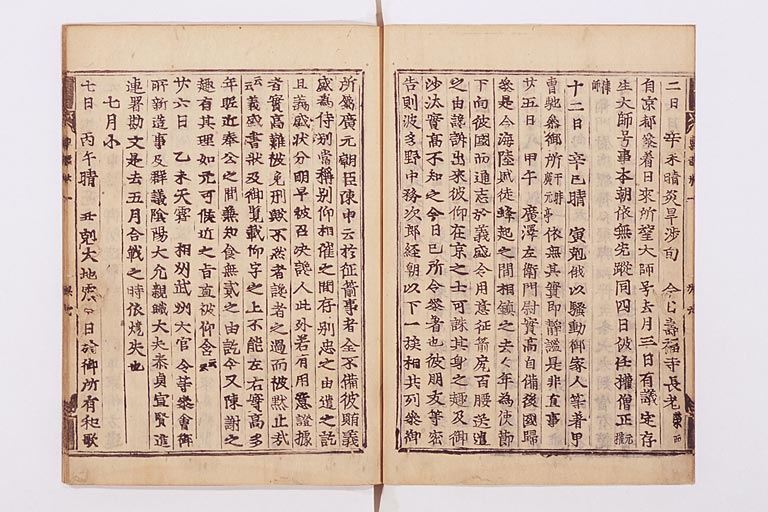 二日 辛未晴炎旱渉旬 今日壽福寺長老榮西
自京都參着日來所望大師号去月三日有議定存
生大師号事本朝依無先蹤同四日被任權僧正元權
律師
十二日 辛巳晴 寅剋俄以騷動御家人等着甲
曹馳參御所于時廣元亭依無其實即靜謐是非直事
廿五日 甲午 廣澤左衛門尉實高自備後國歸
參是今海陸賊徒蜂起之間相鎮之去々年為使節
下向彼國而通志於義盛令用意征箭尻百腰送進
之由讒訴出來彼仰在京之士可誅其身之趣及御
沙汰實高不知之今日已所令參着也彼朋友等密
告則波多野中務次郎経朝以下一族相共列參御
所屬廣元朝臣陳申云於征箭事者全不備彼賂義
盛為侍別當稱別仰相催之間存別忠之由遣之訖
且義盛状分明早被召決讒人此外若有用意證據
者實高難被免刑歟不然者讒者之過而被黙止哉
云々義盛書状及御覽載仰字之上不能左右實高多
年昵近奉公之間無知食無貳之由訖今又陳謝之
趣有其理如元可候近之旨直被仰含云云
廿六日 乙未天霽 相州武州大官令等參會御
所新造事及群議陰陽大允親職大夫泰貞宣賢進
連署勘文是去五月合戰之時依燒失也
七月小
七日 丙午晴 丑剋大地震今日於御所有和歌